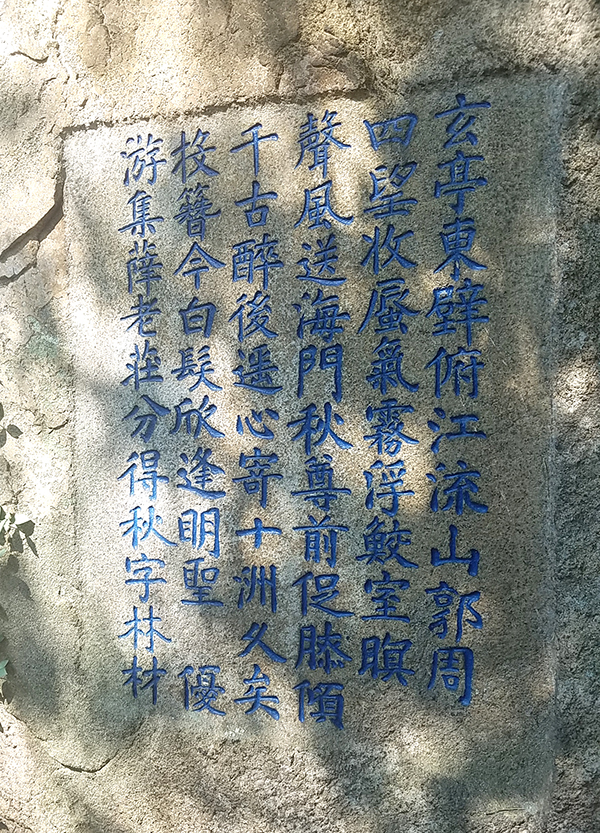 玄亭東壁俯江流山郭周
四望收蜃氣霧浮鮫室暝
聲風送海門秋尊前促膝傾
千古醉後遙心寄十洲久矣
投簪今白髮欣逢明聖 優
游集薛老莊分得秋字林材